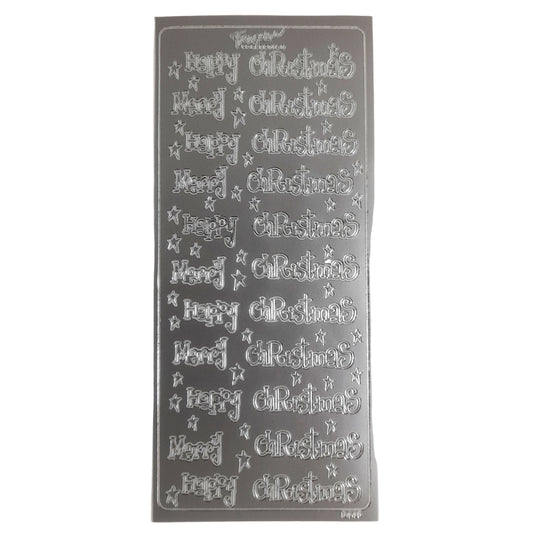 Happy Christmas
Merry Christmas
Happy Christmas
Merry Christmas
Happy Christmas
Merry Christmas
Happy Christmas
Merry Christmas
Happy Christmas
Merry Christmas
Happy Christmas